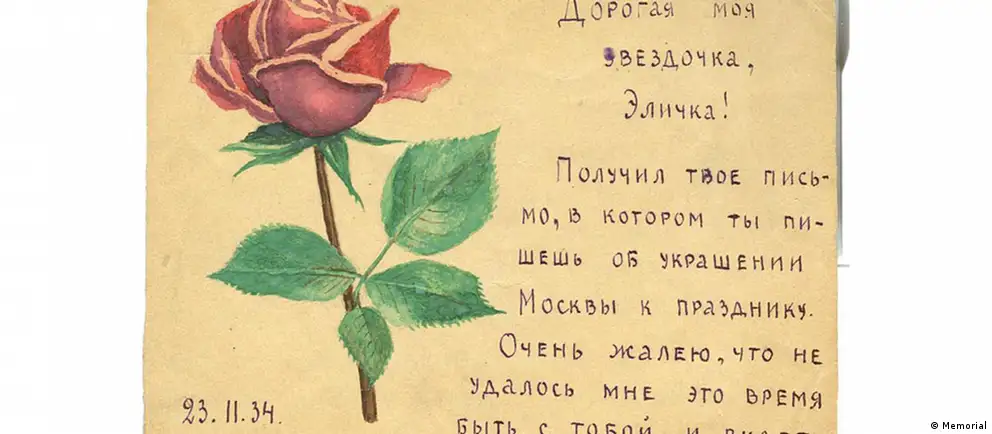 Дорогая моя
звездочка,
Эличка!
Получил твое пись-
мо, в котором ты пи-
шешь об украшении
Москвы к празднику.
Очень жалею, что не
удалось мне это время
быть с тобой и
23.11.34.
© Memorial